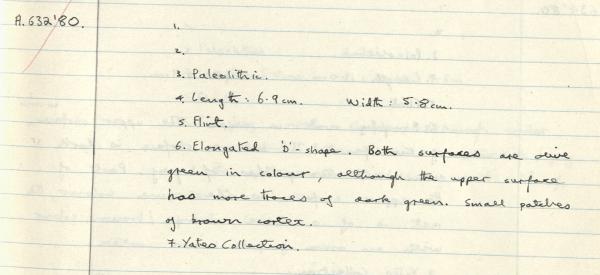 A.632'80.
1.
2.
3. Paleolithic.
4. Length: 6.9cm. Width: 5.8cm.
5. Flint.
6. Elongated 'D'-shape. Both surfaces are olive
green in colour, although the upper surface
has more traces of dark green. Small patches
of brown cortex.
7. Yates Collection.